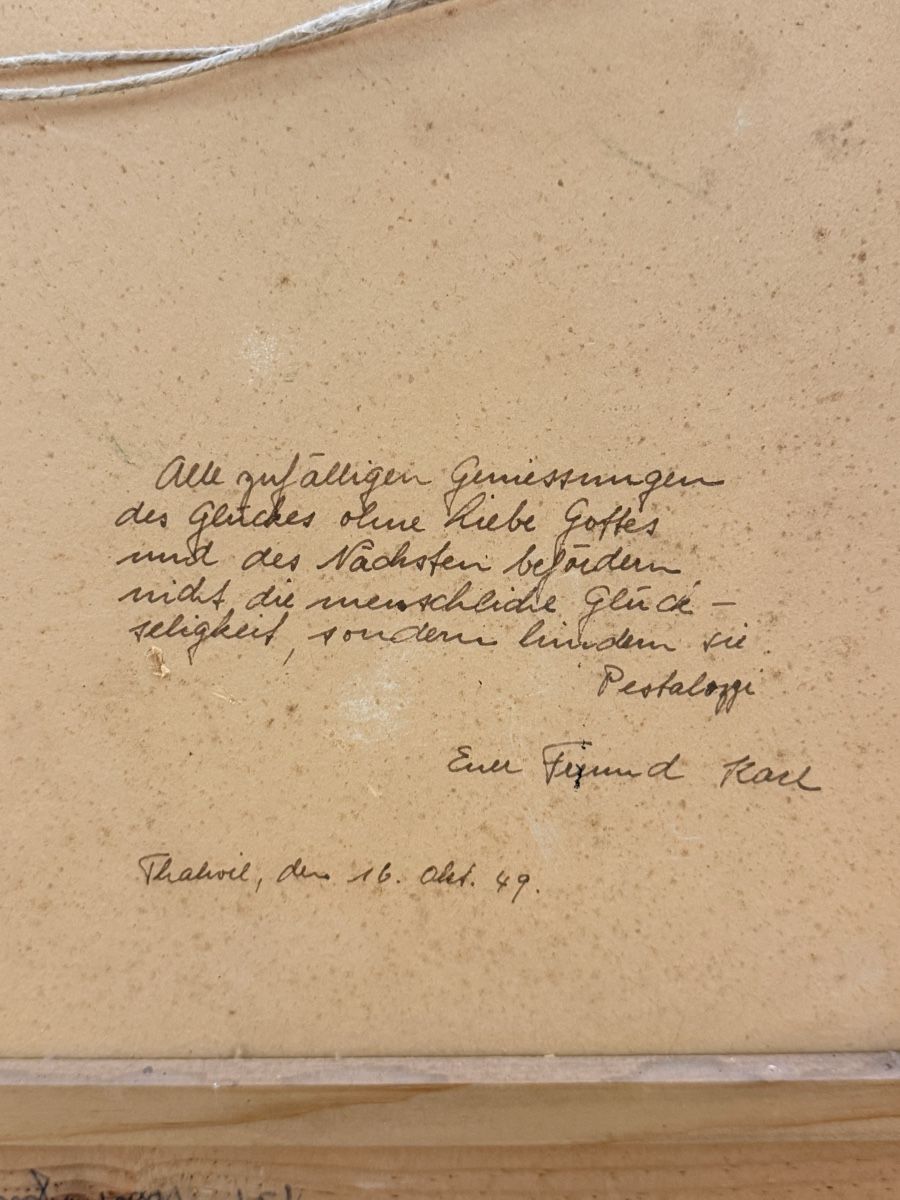 Alle zufälligen Geniessungen
des Glückes ohne Liebe Gottes
und des Nächsten befördern
nicht die menschliche Glück-
seligkeit, sondern hindern sie.
Pestalozzi
Euer Freund Karl
Thalwil, den 16. Okt. 49.